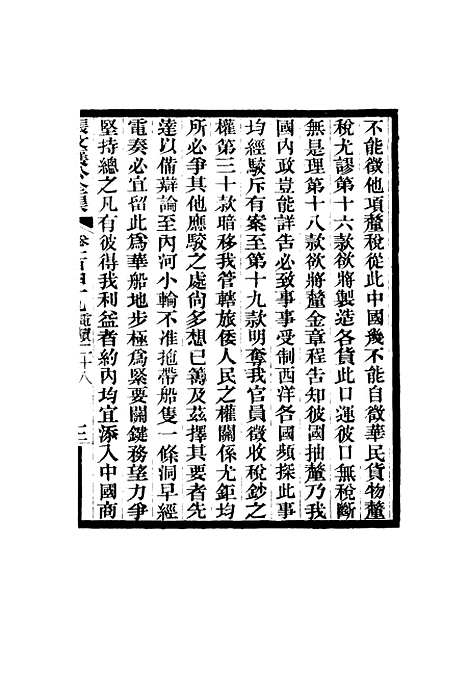 不能徵他項釐稅從此中國幾不能自徵華民貨物釐
稅尤謬第十六款欲將製造各貨此口運彼口無稅斷
無是理第十八款欲將釐金章程告知彼國抽釐乃我
國內政豈能詳告必致事事受制西洋各國頻探此事
均經駁斥有案至第十九款明奪我官員徵收稅鈔之
權第三十款暗移我管轄旅倭人民之權關係尤鉅均
所必爭其他應駁之處尚多想已籌及茲擇其要者先
達以備辯論至內河小輪不准拖帶船隻一條洞早經
電奏必宜留此為華船地步極為緊要關鍵務望力爭
堅持總之凡有彼得我利益者約內均宜添入中國商
張文襄公全集 卷一百四十九 電牘二十八